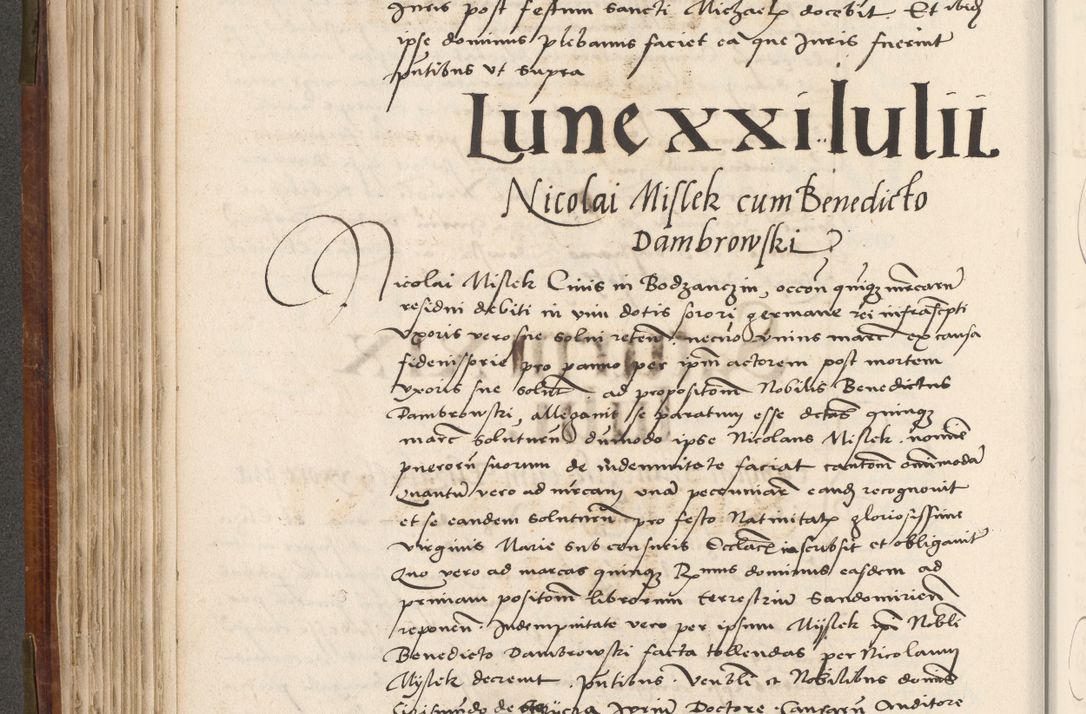 Juris post festum sancti Michaelis docebit. Et ibidem
ipse dominus plebanus faciet ea que Juris fuerint
pntibus ut supra
Lune xxi Iulii
Nicolai Mislek cum Benedicto
Dambrowski
Nicolai Mislek Civis in Bodzanczin, occon quinqz mrcarum
residui debiti in vim dotis sorori germane rei infrascpti
Uxoris vero sue solui reten. necno unius marc ex causa
fideiussorie pro panno per ipm actorem post mortem
Uxoris sue solut. ad propositom Nobilis Benedictus
Dambrowski, allegavit se paratum esse dictas quinqz
marc soluturum dummodo ipse Nicolaus Mislek nomine
puerorum suorum de indemnitate faciat cautom omnimoda
Quantum vero ad mrcam unam pecuniarum eandem recognovit
et se eandem soluturum pro festo Nativitatis gloriosissime
virginis Marie sub censuris Ecclasticis inscribsit et obligavit
Quo vero ad marcas quinqz Rmus dominus easdem ad
primam positom librorum terrestrium Sandomirien
reponen. Indempnitate vero per ipsum Myslek Nobli
Benedicto Dambrowski facta tollendas per Nicolaum
Myslek decrevit. pntibus. Venbli et Nobilibus domis
Gismundo de Juriu Doctore. Causarum Auditore